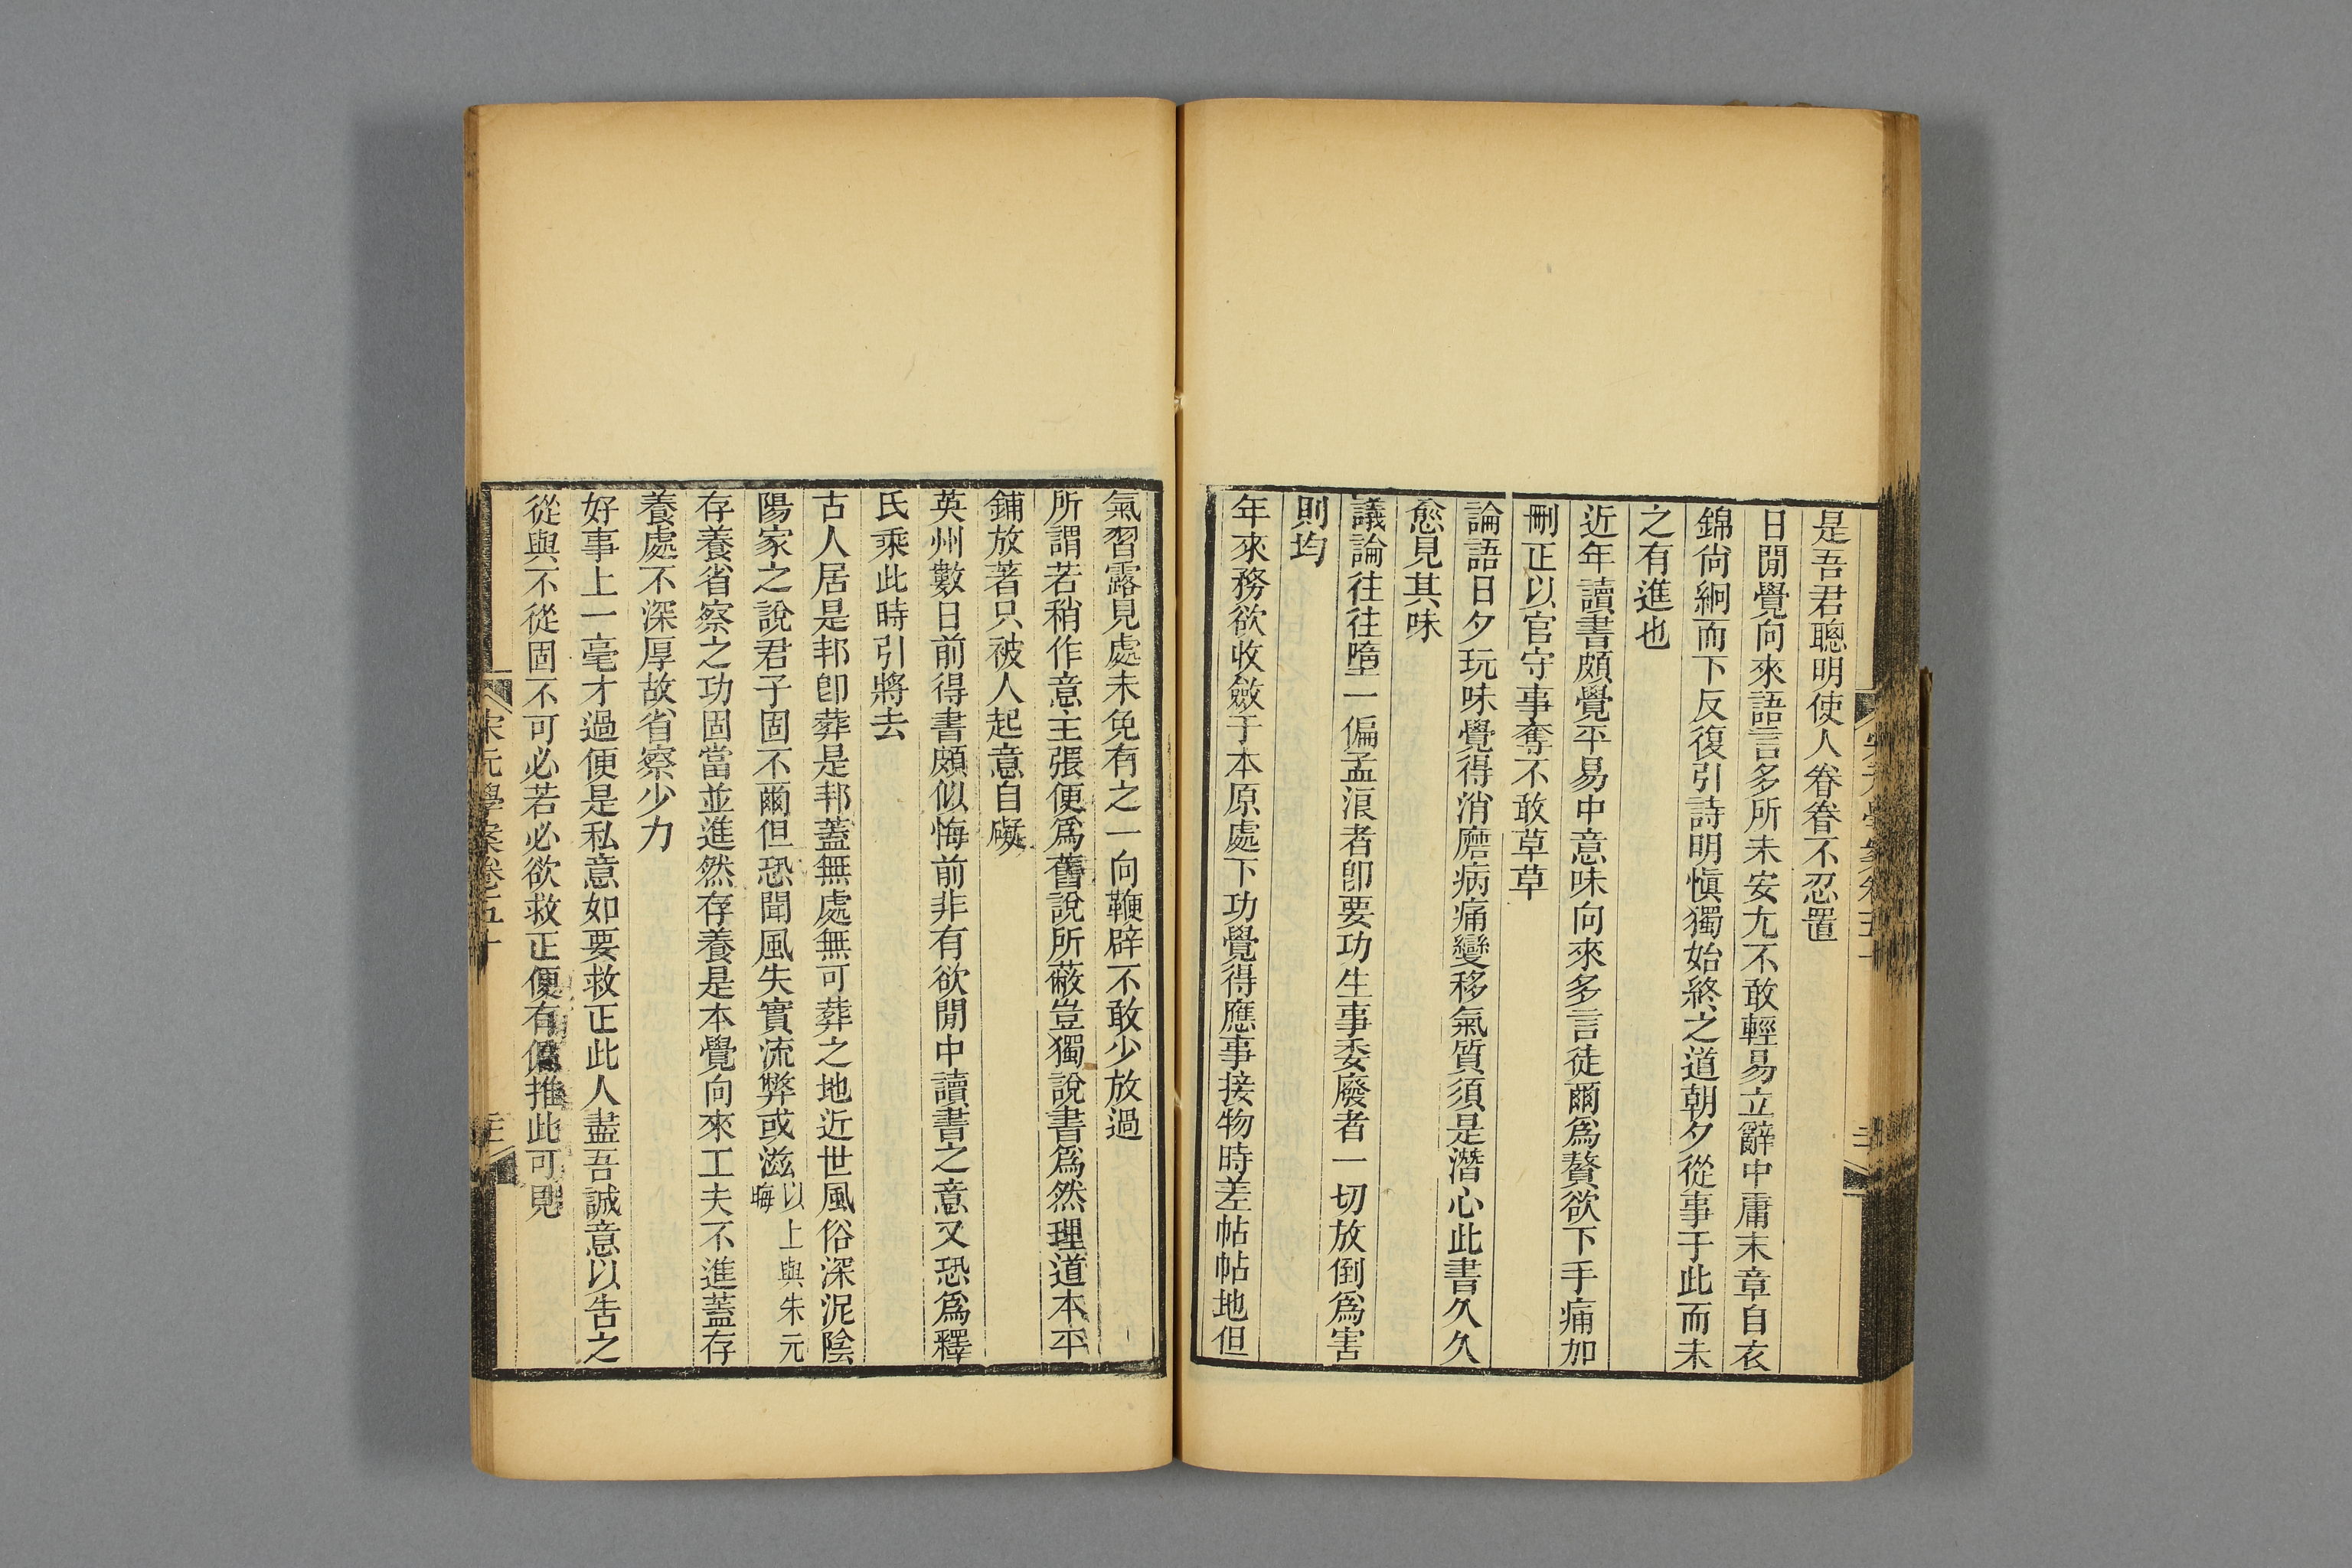 是吾君聰明使人眷眷不忍置
日閒覺向來語言多所未安尢不敢輕易立辭中庸末章自衣
錦尚絅而下反復引詩明愼獨始終之道朝夕從事于此而未
之有進也
近年讀書頗覺平易中意味向來多言徒爾爲贅欲下手痛加
刪正以官守事奪不敢草草
論語日夕玩味覺得消磨病痛變移氣質須是潛心此書久久
愈見其味
議論往往墮一偏孟浪者卽要功生事委廢者一切放倒爲害
則均
年來務欲收斂于本原處下功覺得應事接物時差帖帖地但
氣習露見處未免有之一向鞭辟不敢少放過
所謂若稍作意主張便爲舊說所蔽豈獨說書爲然理道本平
鋪放著只被人起意自礙
英州數日前得書頗似悔前非有欲閒中讀書之意又恐爲釋
氏乘此時引將去
古人居是邦卽葬是邦蓋無處無可葬之地近世風俗深泥陰
陽家之說君子固不爾但恐聞風失實流弊或滋以上與朱元晦
存養省察之功固當並進然存養是本覺向來工夫不進蓋存
養處不深厚故省察少力
好事上一毫才過便是私意如要救正此人盡吾誠意以告之
從與不從固不可必若必欲救正便有偏推此可見
宋元學案卷五十